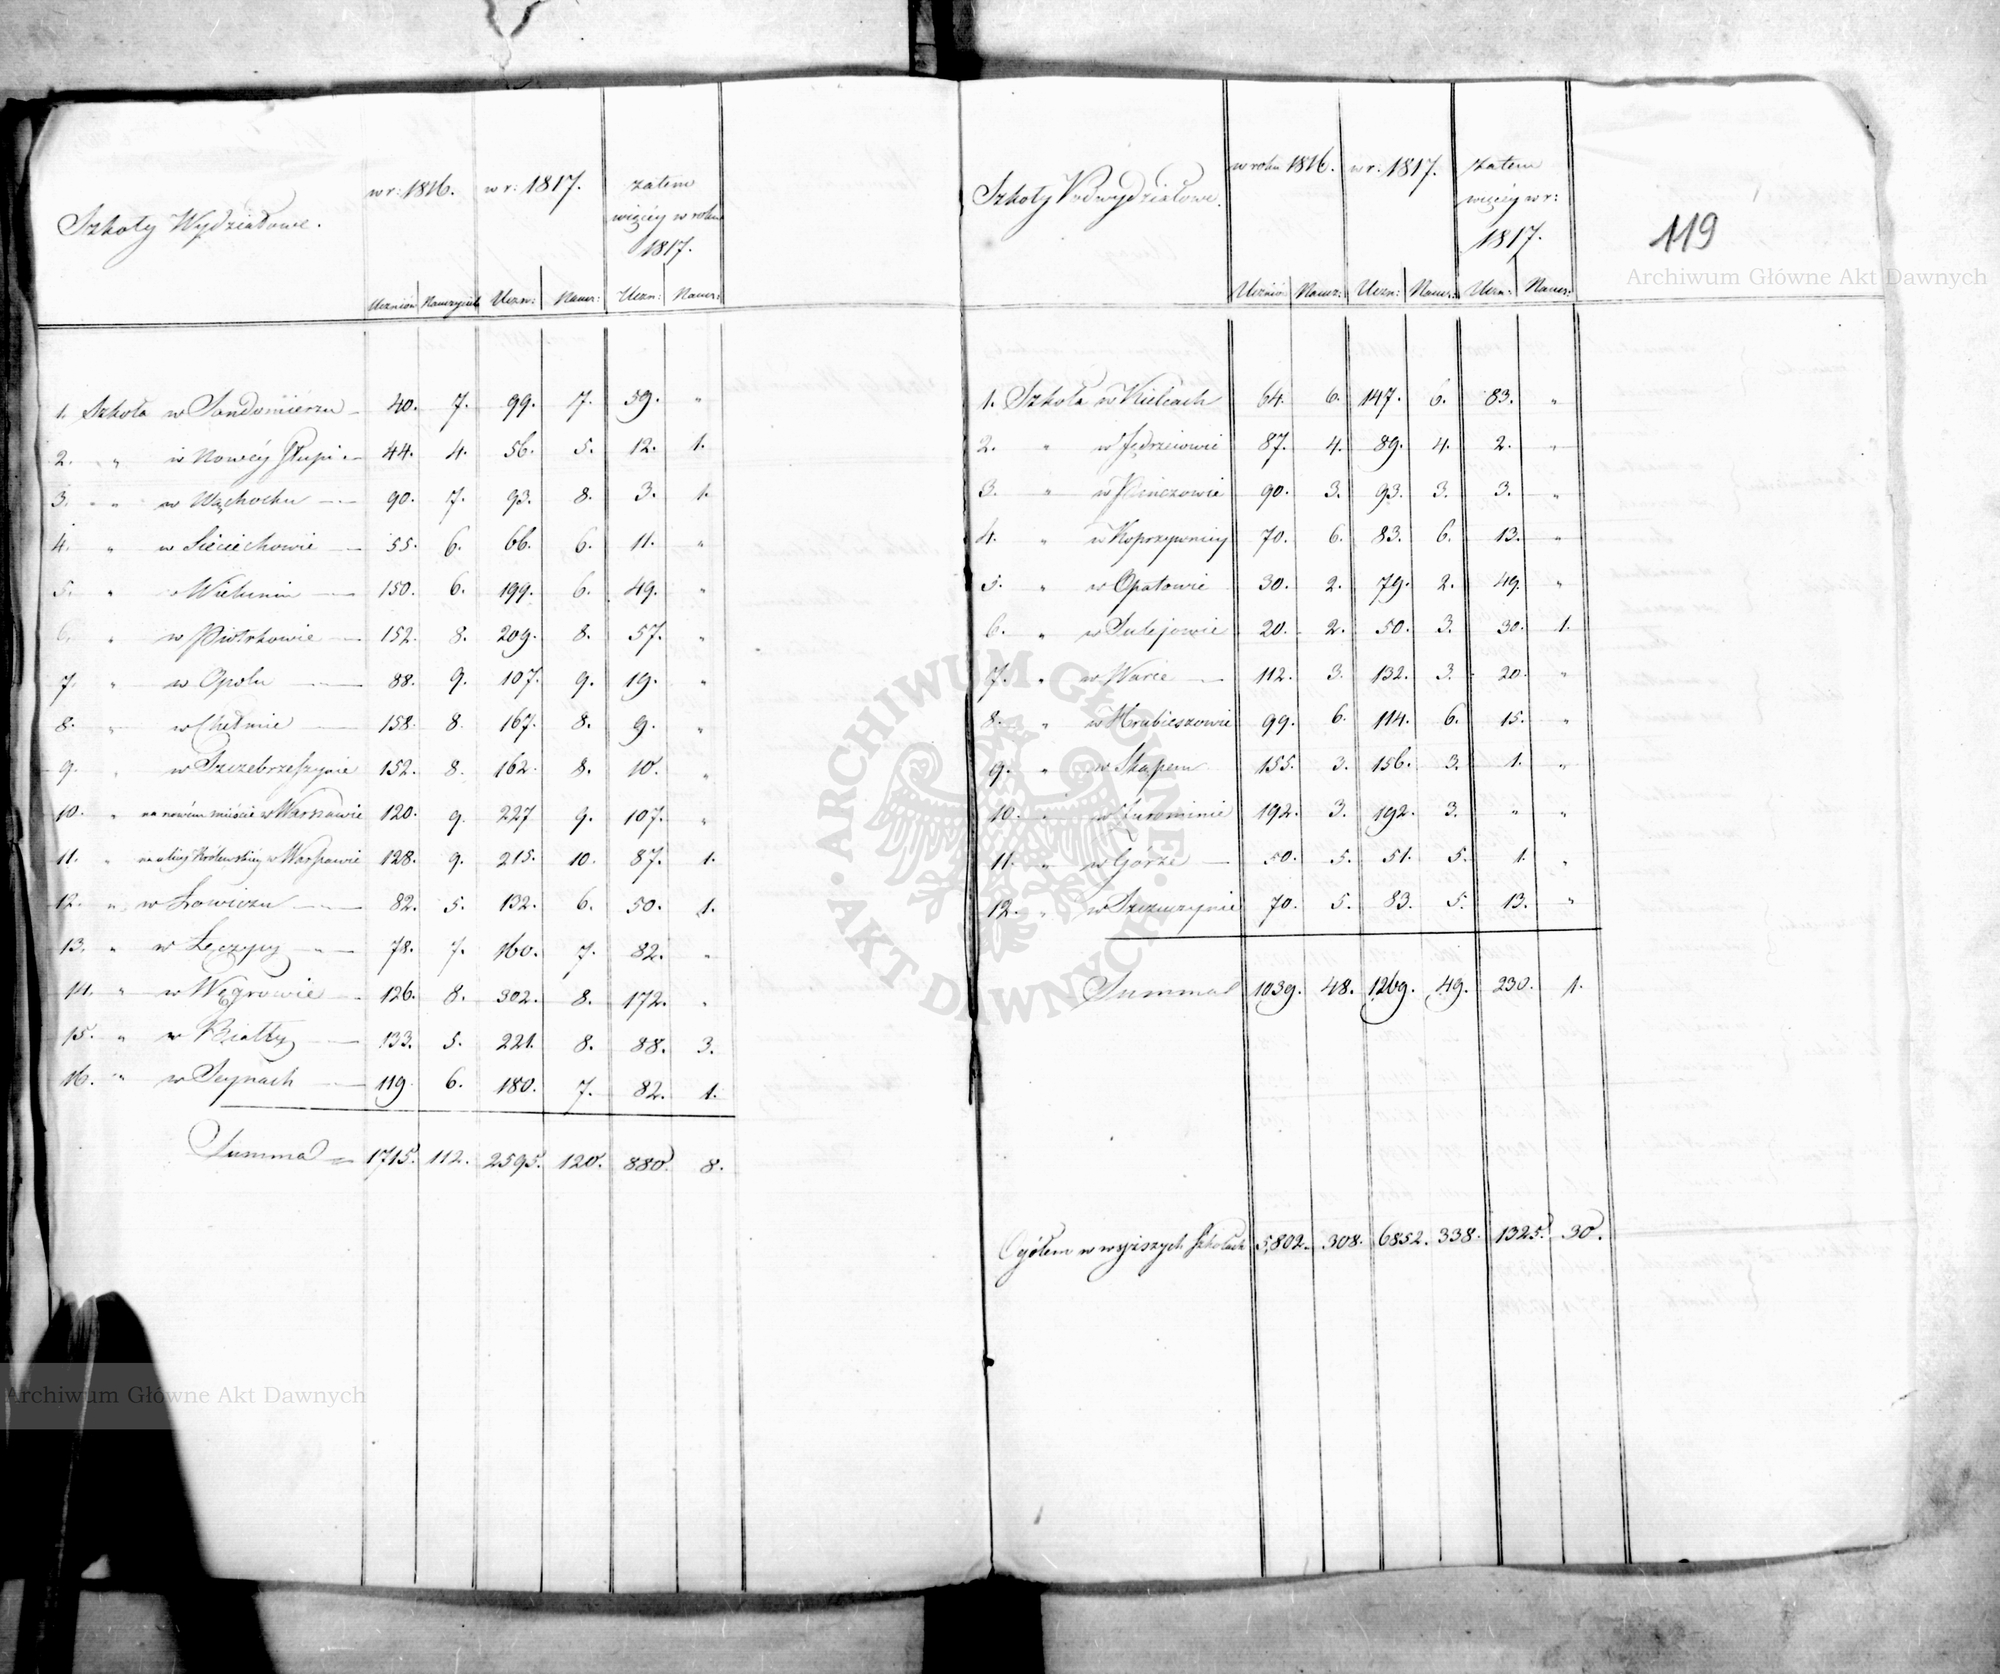 Szkoły Wydziałowe. w r: 1816. w r: 1817. zatem więcéy w roku 1817.
Uczniów Nauczycieli Uczn: Naucz: Uczn: Naucz:
1. Szkoła w Sandomierzu 40. 7. 99. 7. 59. "
2. " w Nowéy Słupi 44. 4. 56. 5. 12. 1.
3. " w Wąchocku 90. 7. 93. 8. 3. 1.
4. " w Sieciechowie 55. 6. 66. 6. 11. "
5. " w Wieluniu 150. 6. 199. 6. 49. "
6. " w Piotrkowie 152. 8. 209. 8. 57. "
7. " w Opolu 88. 9. 107. 9. 19. "
8. " w Chełmie 158. 8. 167. 8. 9. "
9. " w Szczebrzeszynie 152. 8. 162. 8. 10. "
10. " na nowém mieście w Warszawie 120. 9. 227 9. 107. "
11. " na ulicy Królewskiey w Warszawie 128. 9. 215. 10. 87. 1.
12. " w Łowiczu 82. 5. 132. 6. 50. 1.
13. " w Łęczycy 78. 7. 160. 7. 82. "
14. " w Węgrowie 126. 8. 302. 8. 172. "
15. " w Białły 133. 5. 221. 8. 88. 3.
16. " w Seynach 119 6. 180. 7. 82. 1.
Summa 1715. 112. 2595. 120. 880. 8.
Szkoły Podwydziałowe. w roku 1816. w r: 1817. zatem więcéy w r: 1817.
119
Uczniów Naucz: Uczn: Naucz: Uczn: Naucz:
1. Szkoła w Kielcach 64. 6. 147. 6. 83. "
2. " w Jędrzeiowie 87. 4. 89. 4. 2. "
3. " w Pińczowie 90. 3. 93. 3. 3. "
4. " w Koprzywnicy 70. 6. 83. 6. 13. "
5. " w Opatowie 30. 2. 79. 2. 49. "
6. " w Sulejowie 20. 2. 50. 3. 30. 1.
7. " w Warce 112. 3. 132. 3. 20. "
8. " w Hrubieszowie 99. 6. 114. 6. 15. "
9. " w Skąpem 155. 3. 156. 3. 1. "
10. " w Żurominie 192. 3. 192. 3. " "
11. " w Górze 50. 5. 51. 5. 1. "
12. " w Szczuczynie 70. 5. 83. 5. 13. "
Summa 1039. 48. 1269. 49. 230. 1.
Ogółem w wyższych szkołach 5,802. 308. 6852. 338. 1325. 30.
Archiwum Główne Akt Dawnych
Archiwum Główne Akt Dawnych
ARCHIWUM GŁÓWNE AKT DAWNYCH